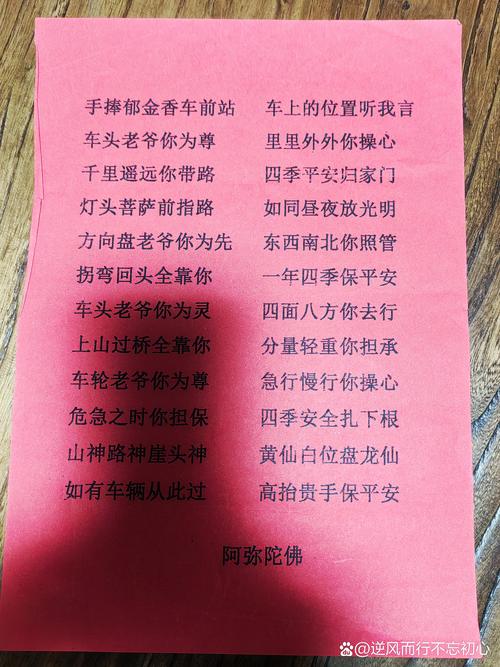 手捧郁金香车前站 车上的位置听我言
车头老爷你为尊 里里外外你操心
千里遥远你带路 四季平安归家门
灯头菩萨前指路 如同昼夜放光明
方向盘老爷你为先 东西南北你照管
拐弯回头全靠你 一年四季保平安
车头老爷你为灵 四面八方你去行
上山过桥全靠你 分量轻重你担承
车轮老爷你为尊 急行慢行你操心
危急之时你担保 四季安全扎下根
山神路神崖头神 黄仙白位盘龙仙
如有车辆从此过 高抬贵手保平安
阿弥陀佛
@逆风而行不忘初心